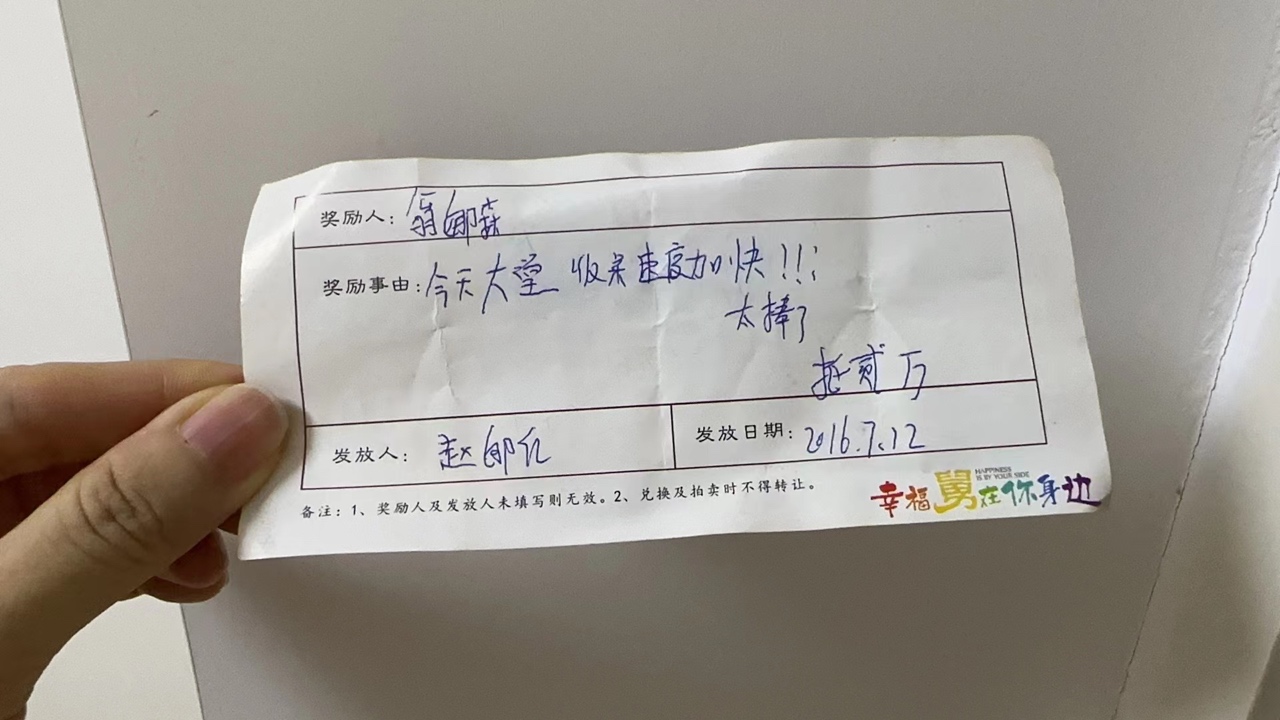 奖励人：翁娜森
奖励事由：今天大堂 收桌速度加快！！！
太棒了
贰万
发放人：赵娜红
发放日期：2016.7.12
备注：1、奖励人及发放人未填写则无效。2、兑换及拍卖时不得转让。
HAPPINESS
IS BY YOUR SIDE
幸福舅在你身边